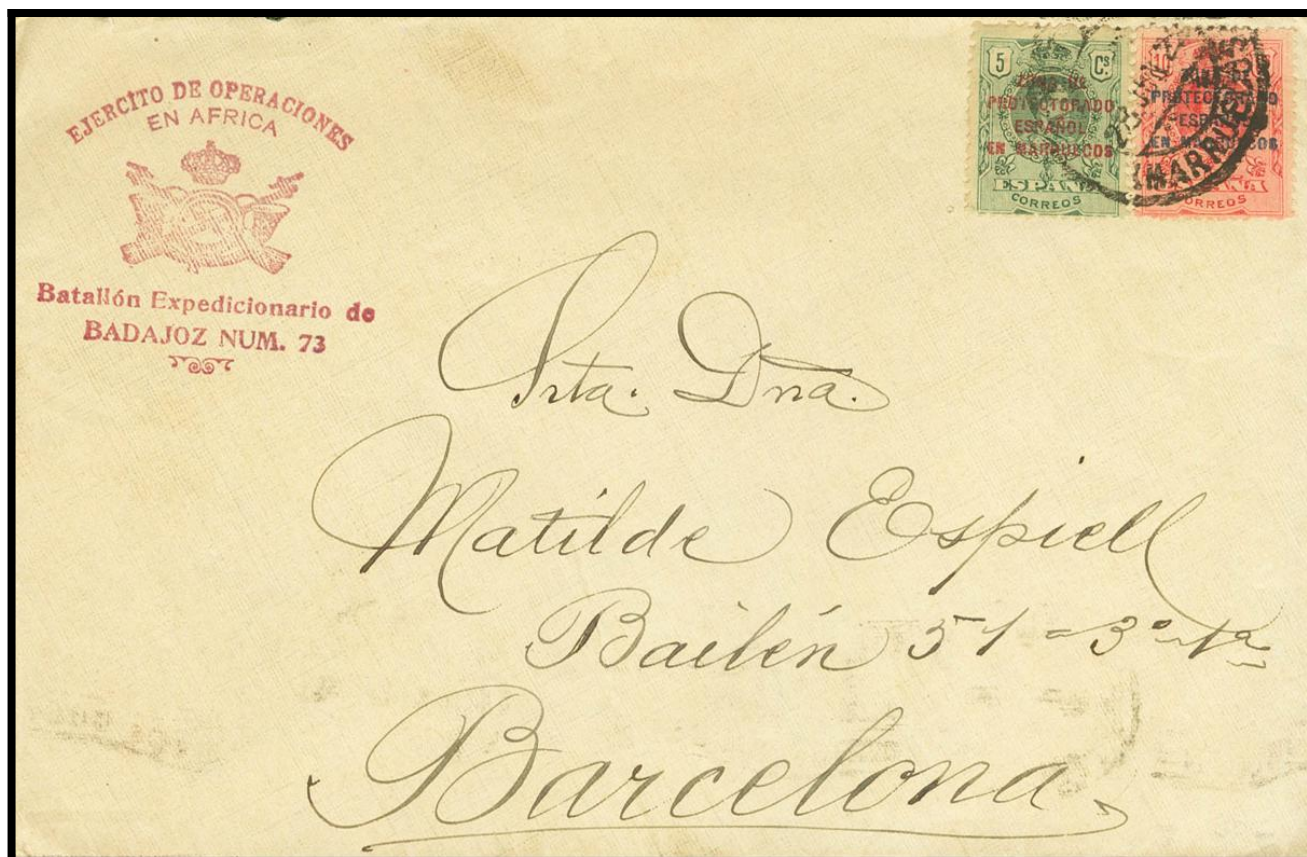 EJERCITO DE OPERACIONES
EN AFRICA
Batallón Expedicionario de
BADAJOZ NUM. 73
5 Cs
ZONA DE
PROTECTORADO
ESPAÑOL
EN MARRUECOS
ESPAÑA
CORREOS
PROTECTORADO
EN MARRUECOS
CORREOS
MARRUECOS
Srta. Dna.
Matilde Espiell
Bailén 51 = 3º 1ª
Barcelona